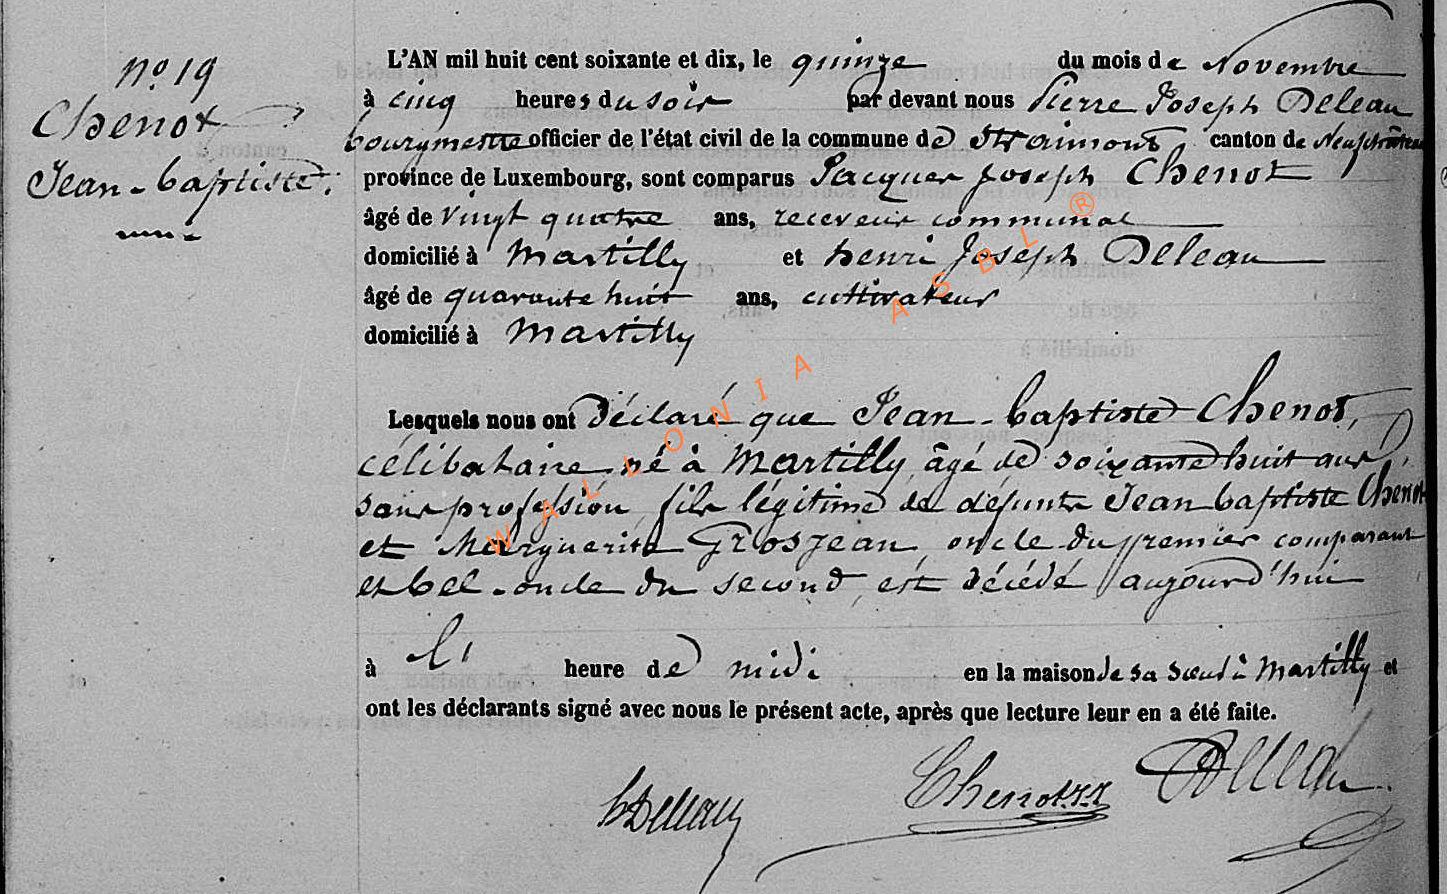 No 19
Chenot
Jean-baptiste.
L'AN mil huit cent soixante et dix, le quinze du mois de Novembre
à cinq heures du soir par devant nous Pierre Joseph Deleau
bourgmestre officier de l'état civil de la commune de Straimont canton de Neufchâteau
province de Luxembourg, sont comparus Jacques joseph Chenot
âgé de vingt quatre ans, receveur communal
domicilié à Martilly et henri Joseph Deleau
âgé de quarante huit ans, cultivateur
domicilié à Martilly
Lesquels nous ont déclaré que Jean-baptiste Chenot,
célibataire né à Martilly, âgé de soixante huit ans,
sans profession, fils légitime de défunts Jean baptiste Chenot
et Marguerite Grosjean, oncle du premier comparant
et bel-oncle du second, est décédé aujourd'hui
à l' heure de midi en la maison de sa sœur à Martilly et
ont les déclarants signé avec nous le présent acte, après que lecture leur en a été faite.
hDeleau Chenot J.J. Deleau
WALLONIA ASBL ®